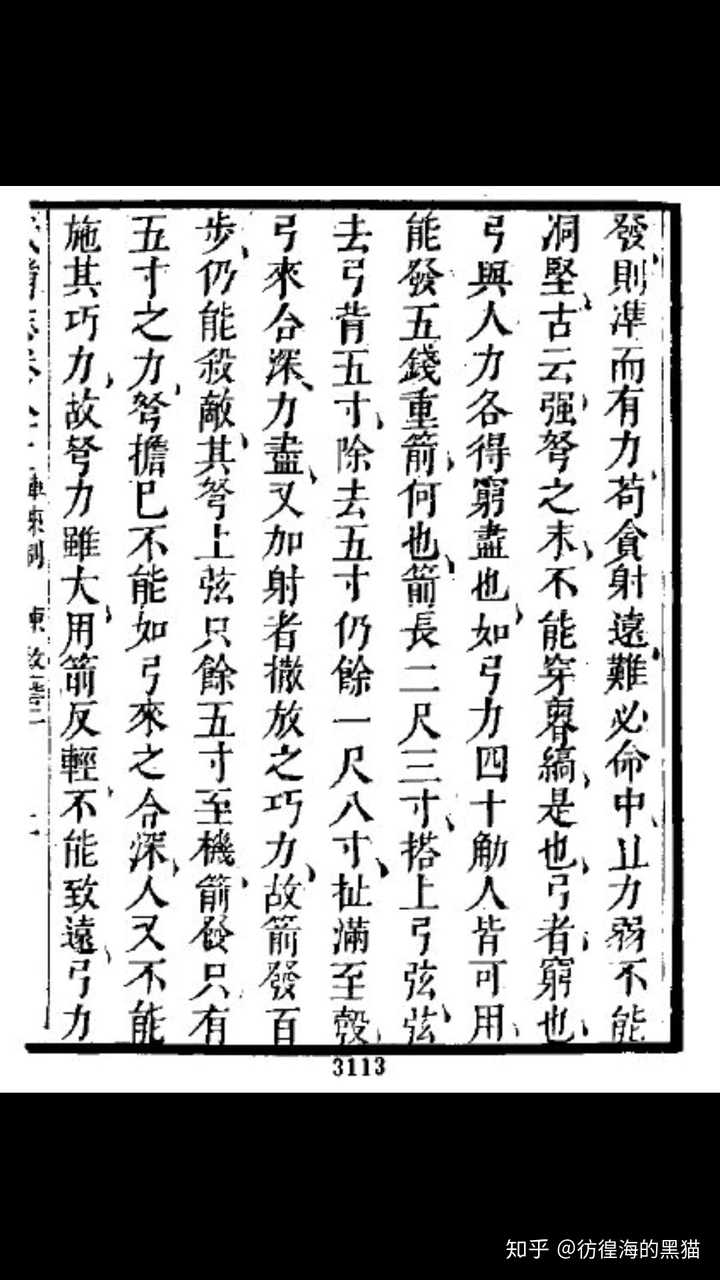 發則準而有力苟貪射遠難必命中且力弱不能
洞堅古云强弩之末不能穿魯縞是也弓者窮也
弓與人力各得窮盡也如弓力四十觔人皆可用
能發五錢重箭何也箭長二尺三寸搭上弓弦弦
去弓背五寸除去五寸仍餘一尺八寸扯滿至彀
弓來合深力盡又加射者撒放之巧力故箭發百
步仍能殺敵其弩上弦只餘五寸至機箭發只有
五寸之力弩擔已不能如弓來之合深人又不能
施其巧力故弩力雖大用箭反輕不能致遠弓力
3113
知乎 @彷徨海的黑猫